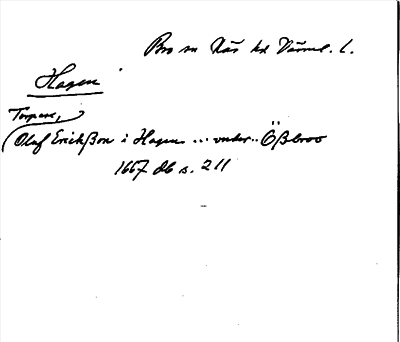 Bro sn Näs hd Värml. l.
Hagen
Torpare,
Oluf Erichßon i Hagen ... under .. Ößbroo
1667 db s. 211